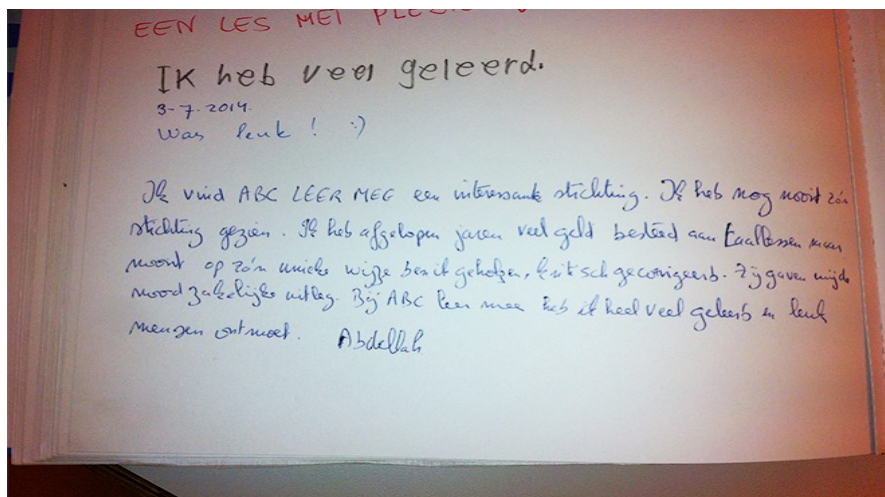 EEN LES MET PLEZIE
IK heb veel geleerd.
3-7-2014.
Was leuk! :)
Ik vind ABC LEER MEE een interessante stichting. Ik heb nog nooit zo'n
stichting gezien. Ik heb afgelopen jaren veel geld besteed aan taallessen maar
nooit op zo'n unieke wijze ben ik geholpen, kritisch gecorrigeerd. Zij gaven mij de
noodzakelijke uitleg. Bij ABC leer mee heb ik heel veel geleerd en leuk
mensen ontmoet. Abdellah